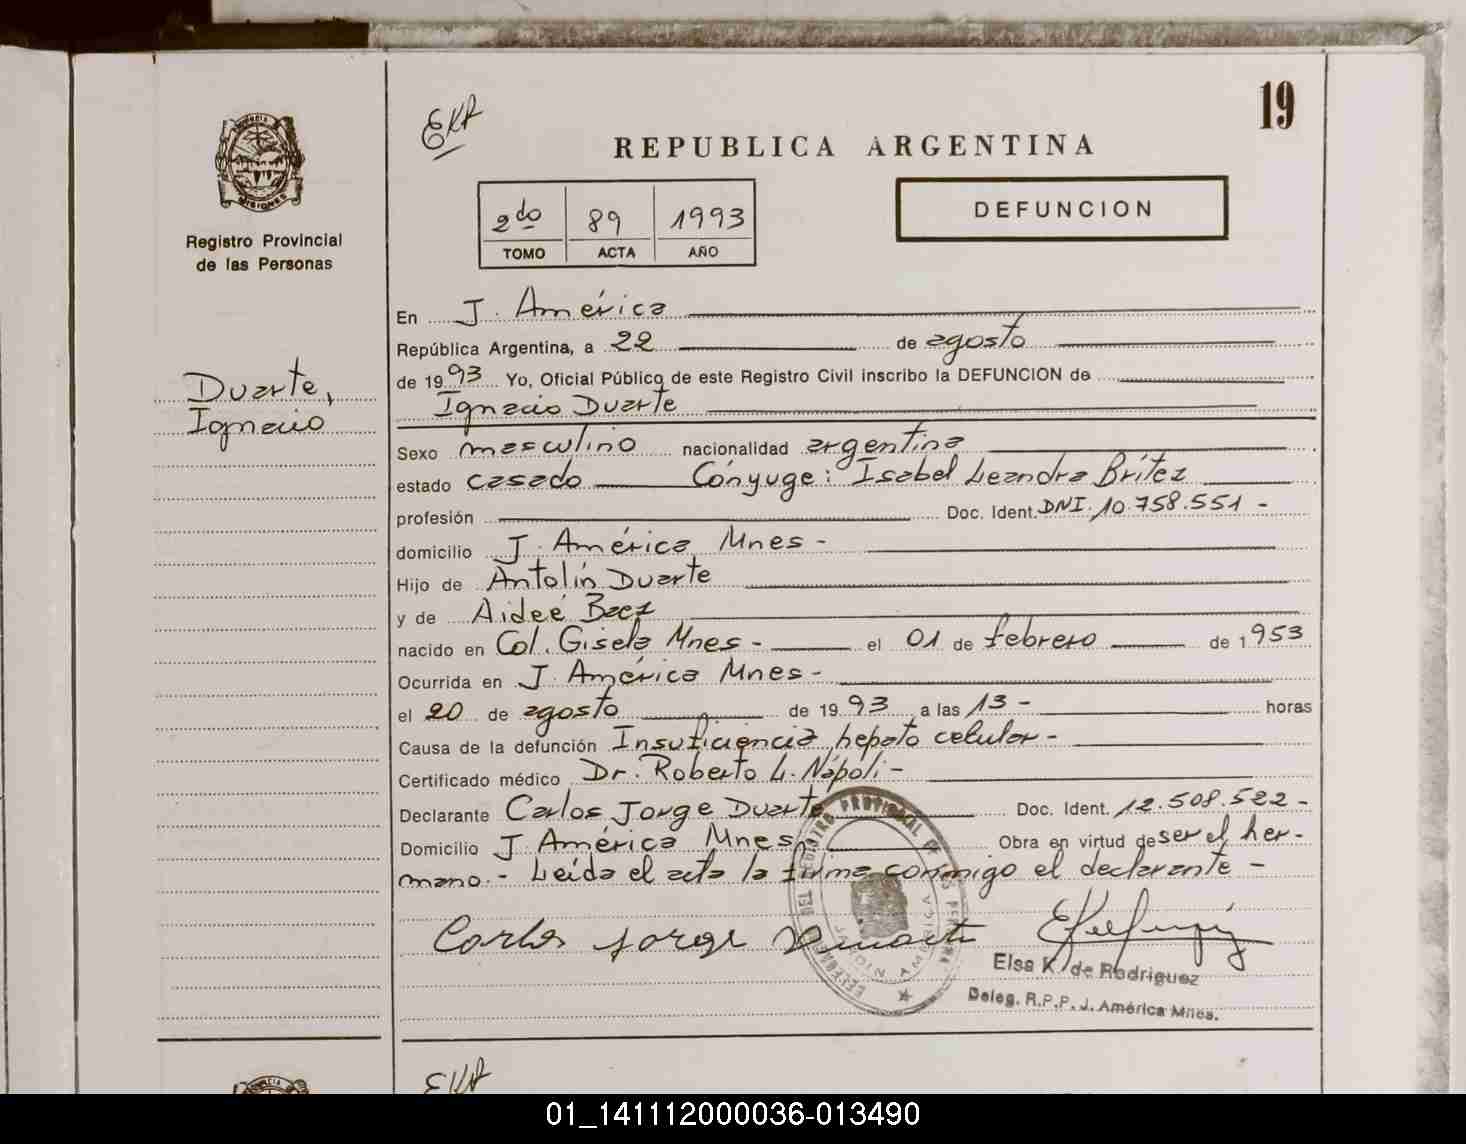 19
EKR
REPUBLICA ARGENTINA
PROVINCIA DE MISIONES
Registro Provincial
de las Personas
2do 89 1993
TOMO ACTA AÑO
DEFUNCION
Duarte,
Ignacio
En J. América
República Argentina, a 22 de agosto
de 1993 Yo, Oficial Público de este Registro Civil inscribo la DEFUNCION de
Ignacio Duarte
Sexo masculino nacionalidad argentina
estado casado Cónyuge: Isabel Leandra Brítez
profesión Doc. Ident. DNI. 10.758.551 -
domicilio J. América Mnes -
Hijo de Antolín Duarte
y de Aideé Baez
nacido en Col. Gisela Mnes - el 01 de febrero de 1953
Ocurrida en J. América Mnes -
el 20 de agosto de 1993 a las 13 - horas
Causa de la defunción Insuficiencia hepato celular -
Certificado médico Dr. Roberto L. Nápoli -
Declarante Carlos Jorge Duarte Doc. Ident. 12.508.522 -
Domicilio J. América Mnes Obra en virtud de ser el her-
mano. - Leída el acta la firma conmigo el declarante -
Carlos Jorge Duarte
Elsa K. de Rodriguez
Deleg. R.P.P. J. América Mnes.
EKR
01_141112000036-013490